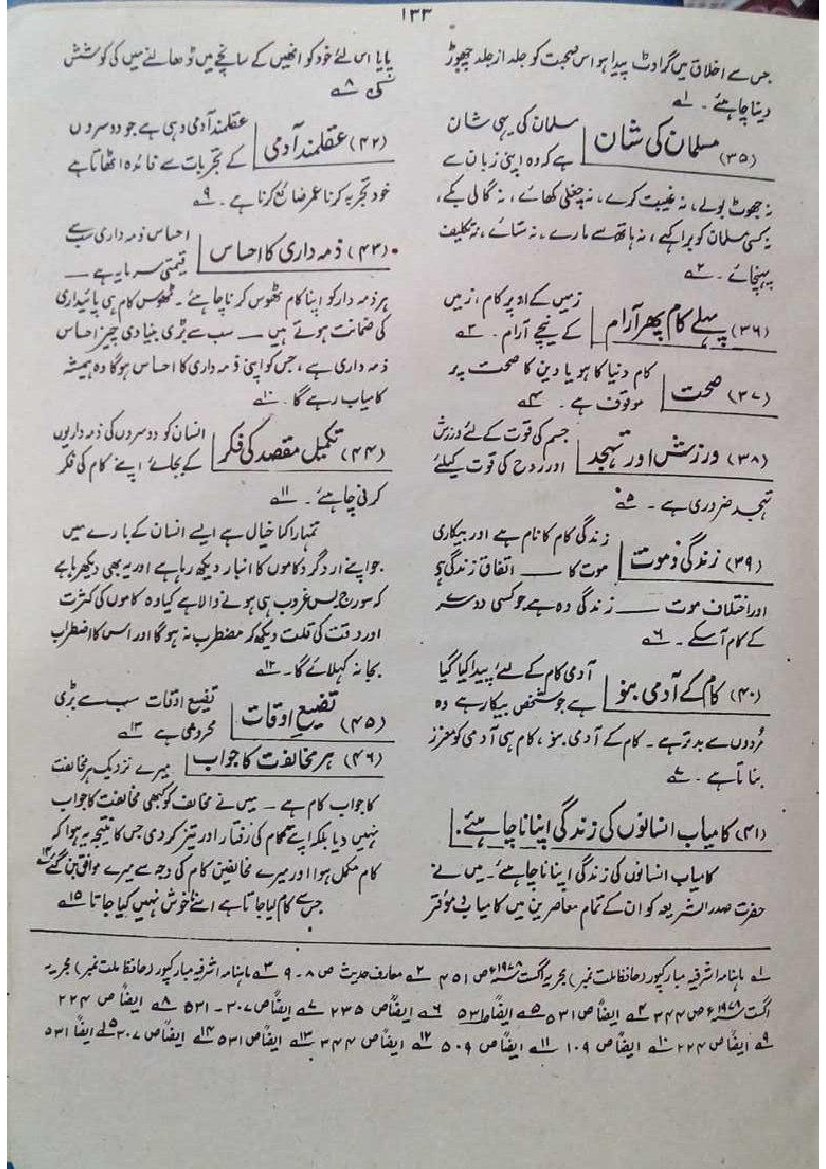 ۱۳۳
جس سے اخلاق میں گراوٹ پیدا ہو اس صحبت کو جلد از جلد چھوڑ
دینا چاہئے۔ ۱؎
(۳۵) مسلمان کی شان
مسلمان کی یہی شان
ہے کہ وہ اپنی زبان سے
نہ جھوٹ بولے، نہ غیبت کرے، نہ چغلی کھائے، نہ گالی بکے،
نہ کسی مسلمان کو برا کہے، نہ ہاتھ سے مارے، نہ ستائے، نہ تکلیف
پہنچائے۔ ۲؎
(۳۶) پہلے کام پھر آرام
زمیں کے اوپر کام، زمیں
کے نیچے آرام۔ ۳؎
(۳۷) صحت
کام دنیا کا ہو یا دین کا صحت پر
موقوف ہے۔ ۴؎
(۳۸) ورزش اور تہجد
جسم کی قوت کے لئے ورزش
اور روح کی قوت کیلئے
تہجد ضروری ہے۔ ۵؎
(۳۹) زندگی و موت
زندگی کام کا نام ہے اور بیکاری
موت کا ــــ اتفاق زندگی ہے
اور اختلاف موت ــــ زندگی وہ ہے جو کسی دوسرے
کے کام آسکے۔ ۶؎
(۴۰) کام کے آدمی بنو
آدمی کام کے لئے پیدا کیا گیا
ہے جو شخص بیکار ہے وہ
مُردوں سے بدتر ہے۔ کام کے آدمی بنو، کام ہی آدمی کو معزز
بناتا ہے۔ ۷؎
(۴۱) کامیاب انسانوں کی زندگی اپنانا چاہئے۔
کامیاب انسانوں کی زندگی اپنانا چاہئے۔ میں نے
حضرت صدر الشریعہ کو ان کے تمام معاصرین میں کامیاب و مؤقر
پایا اس لئے خود کو انھیں کے سانچے میں ڈھالنے میں کی کوشش
کی ۸؎
(۴۲) عقلمند آدمی
عقلمند آدمی وہی ہے جو دوسروں
کے تجربات سے فائدہ اٹھاتا ہے
خود تجربہ کرنا عمر ضائع کرنا ہے۔ ۹؎
(۴۳) ذمہ داری کا احساس
احساس ذمہ داری سب سے
قیمتی سرمایہ ہے ــــ
ہر ذمہ دار کو اپنا کام ٹھوس کرنا چاہئے۔ ٹھوس کام ہی پائیداری
کی ضمانت ہوتے ہیں ــــ سب سے بڑی بنیادی چیز احساس
ذمہ داری ہے، جس کو اپنی ذمہ داری کا احساس ہوگا وہ ہمیشہ
کامیاب رہے گا۔ ۱۰؎
(۴۴) تکمیل مقصد کی فکر
انسان کو دوسروں کی ذمہ داریوں
کے بجائے اپنے کام کی فکر
کرنی چاہئے۔ ۱۱؎
تمہارا کیا خیال ہے ایسے انسان کے بارے میں
جو اپنے ارد گرد کاموں کا انبار دیکھ رہا ہے اور یہ بھی دیکھ رہا ہے
کہ سورج بس غروب ہی ہونے والا ہے کیا وہ کاموں کی کثرت
اور وقت کی قلت دیکھ کر مضطرب نہ ہوگا اور اس کا اضطراب
بجا نہ کہلائے گا۔ ۱۲؎
(۴۵) تضیع اوقات
تضیع اوقات سب سے بڑی
محرومی ہے ۱۳؎
(۴۶) ہر مخالفت کا جواب
میرے نزدیک ہر مخالفت
کا جواب کام ہے ــــ میں نے مخالف کو کبھی مخالفت کا جواب
نہیں دیا بلکہ اپنے کام کی رفتار اور تیز کر دی جس کا نتیجہ یہ ہوا کہ
کام مکمل ہوا اور میرے مخالفین کام کی وجہ سے میرے موافق بن گئے ۱۴؎
جس سے کام لیا جاتا ہے اسے ناخوش نہیں کیا جاتا ۱۵؎
۱؎ ماہنامہ اشرفیہ مبارکپور (حافظ ملت نمبر) مجریہ اگست ۱۹۷۸ء ص ۴۵۱ ۲؎ معارف حدیث ص ۸۔۹ ۳؎ ماہنامہ اشرفیہ مبارکپور (حافظ ملت نمبر) مجریہ
اگست ۱۹۷۸ء ص ۳۴۴ ۴؎ ایضاً ص ۵۳۱ ۵؎ ایضاً ص ۵۳۱ ۶؎ ایضاً ص ۲۳۵ ۷؎ ایضاً ص ۳۰۷۔۵۳۱ ۸؎ ایضاً ص ۲۲۴
۹؎ ایضاً ص ۲۲۴ ۱۰؎ ایضاً ص ۱۰۹ ۱۱؎ ایضاً ص ۵۰۹ ۱۲؎ ایضاً ص ۳۴۴ ۱۳؎ ایضاً ص ۵۳۱ ۱۴؎ ایضاً ص ۳۰۷ ۱۵؎ ایضاً ۵۳۱